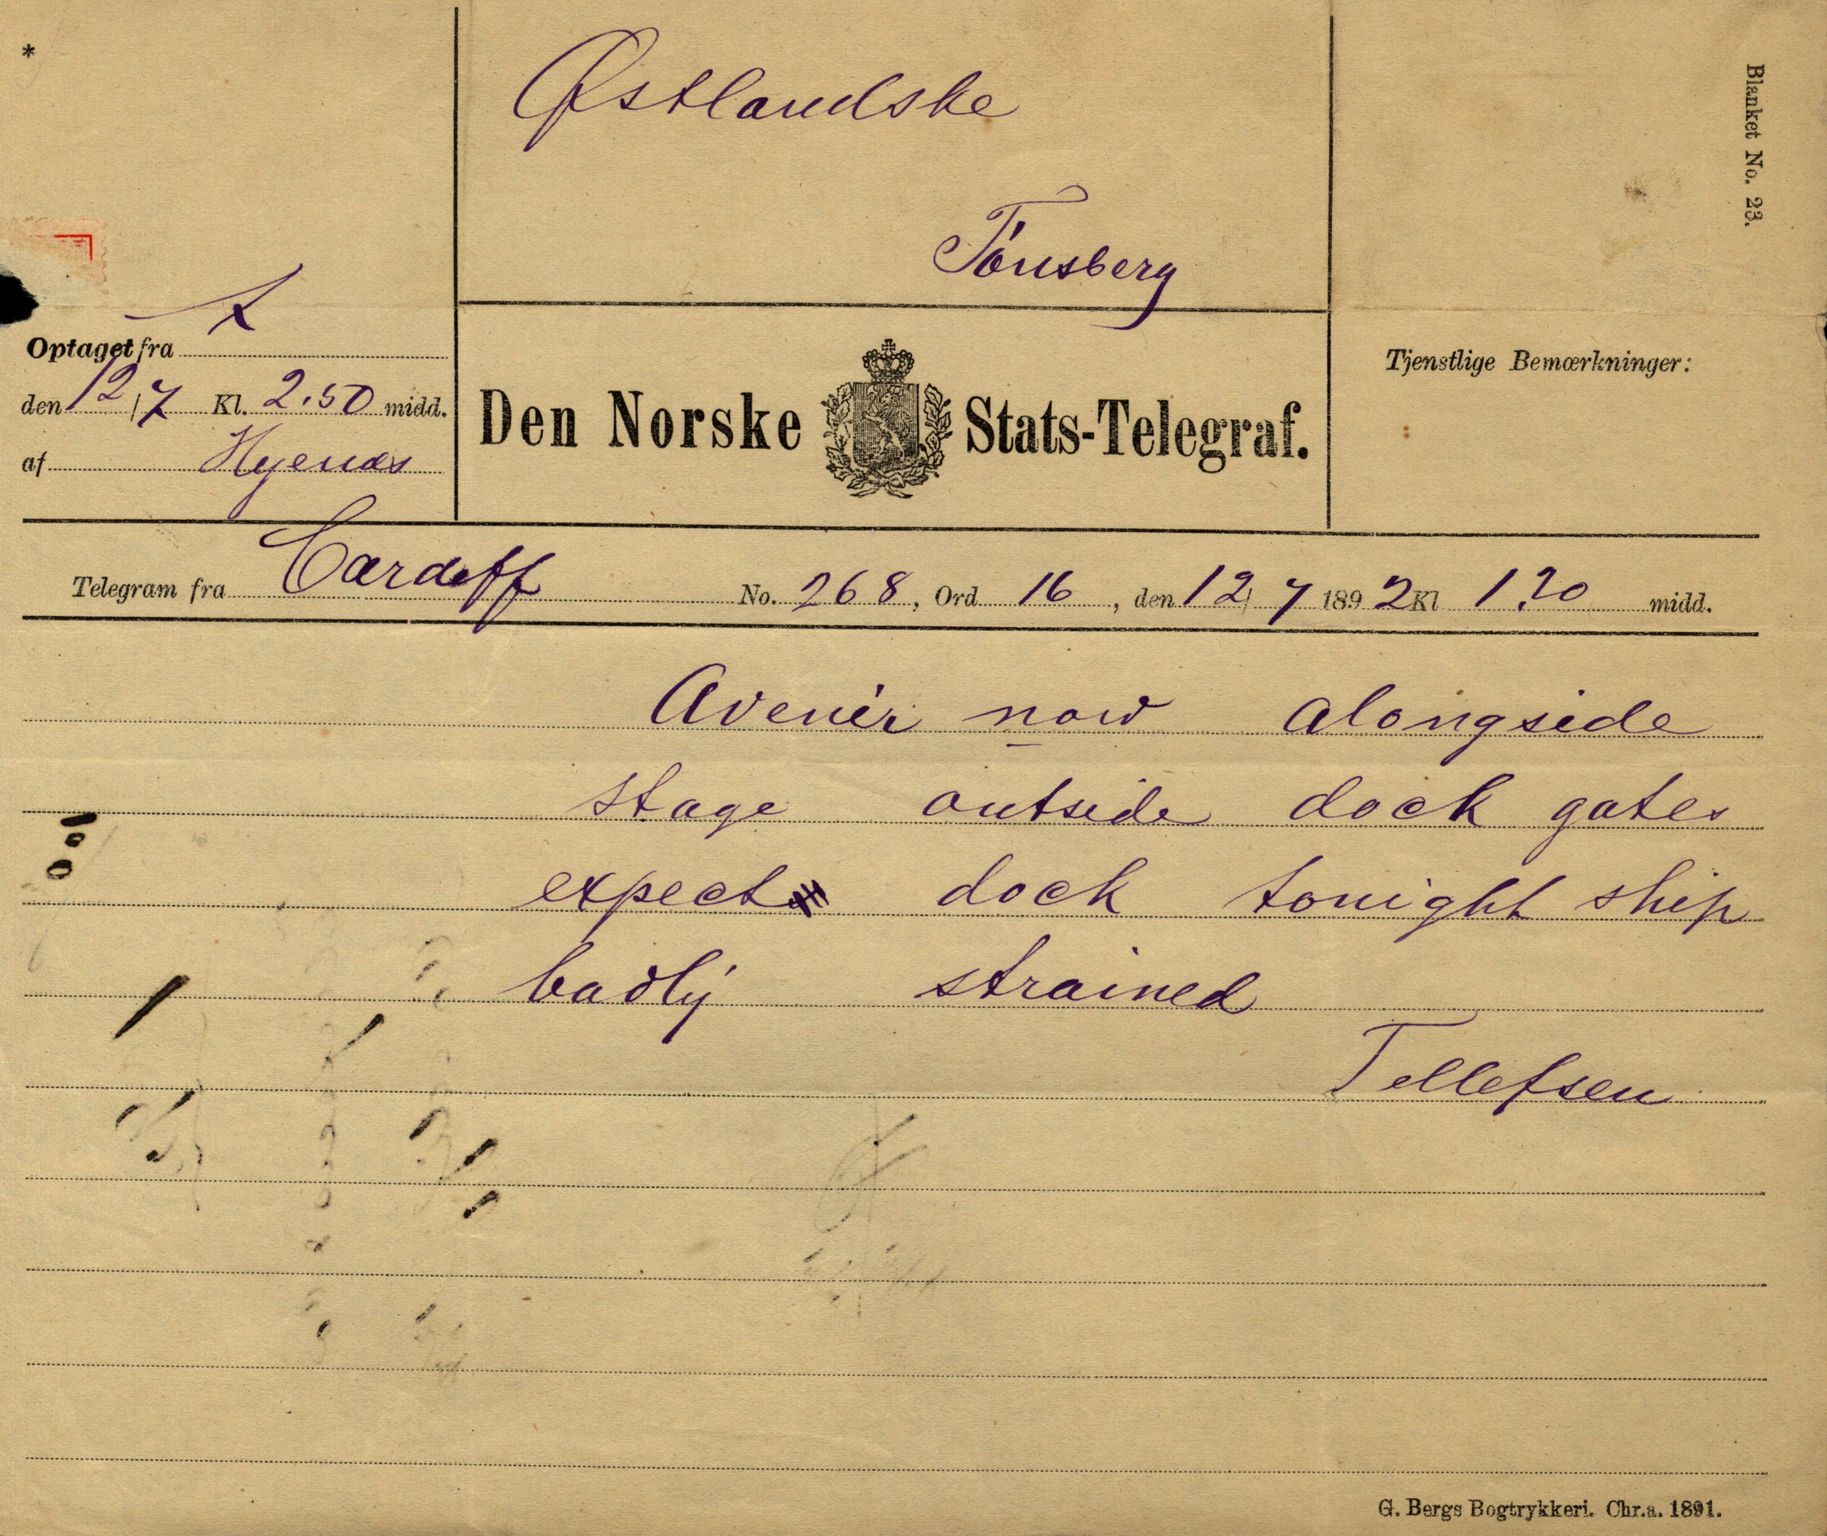 *
Østlandske
Tönsberg
Blanket No. 23.
Optaget fra A
den 12/7 Kl. 2.50 midd.
af Hyenæs
Den Norske Stats-Telegraf.
Tjenstlige Bemærkninger:
Telegram fra Cardiff No. 268, Ord 16, den 12/7 1892 Kl 1.20 midd.
Avenir now alongside
stage outside dock gates
expect dock tonight ship
badly strained
Tellefsen
G. Bergs Bogtrykkeri. Chr.a. 1891.